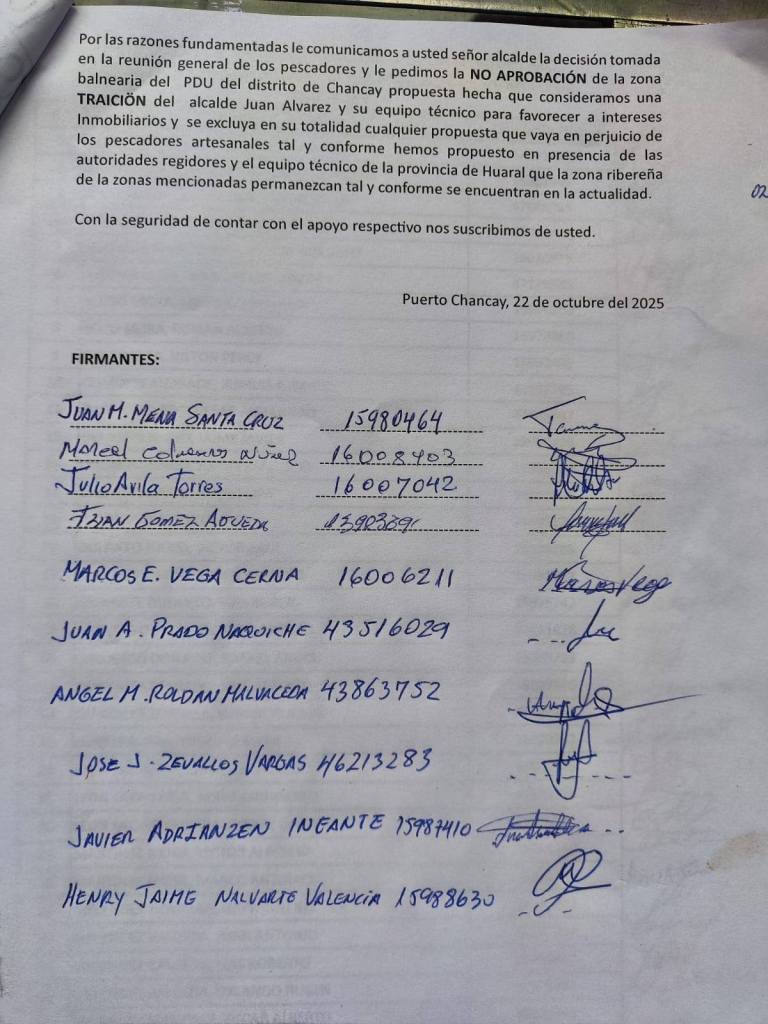 Por las razones fundamentadas le comunicamos a usted señor alcalde la decisión tomada
en la reunión general de los pescadores y le pedimos la NO APROBACIÓN de la zona
balnearia del PDU del distrito de Chancay propuesta hecha que consideramos una
TRAICIÖN del alcalde Juan Alvarez y su equipo técnico para favorecer a intereses
Inmobiliarios y se excluya en su totalidad cualquier propuesta que vaya en perjuicio de
los pescadores artesanales tal y conforme hemos propuesto en presencia de las
autoridades regidores y el equipo técnico de la provincia de Huaral que la zona ribereña
de la zonas mencionadas permanezcan tal y conforme se encuentran en la actualidad.
02
Con la seguridad de contar con el apoyo respectivo nos suscribimos de usted.
Puerto Chancay, 22 de octubre del 2025
FIRMANTES:
JUAN M. MENA SANTA CRUZ 15980464
16008403
Julio Avila Torres 16007042
GOMEZ
MARCOS E. VEGA CERNA 16006211 Marcos Vega
JUAN A. PRADO NAQUICHE 43516029
ANGEL M. ROLDAN MALVACEDA 43863752
JOSE J. ZEVALLOS VARGAS 46213283
JAVIER ADRIANZEN INFANTE 15987410
HENRY JAIME NALVARTE VALENCIA 15988630